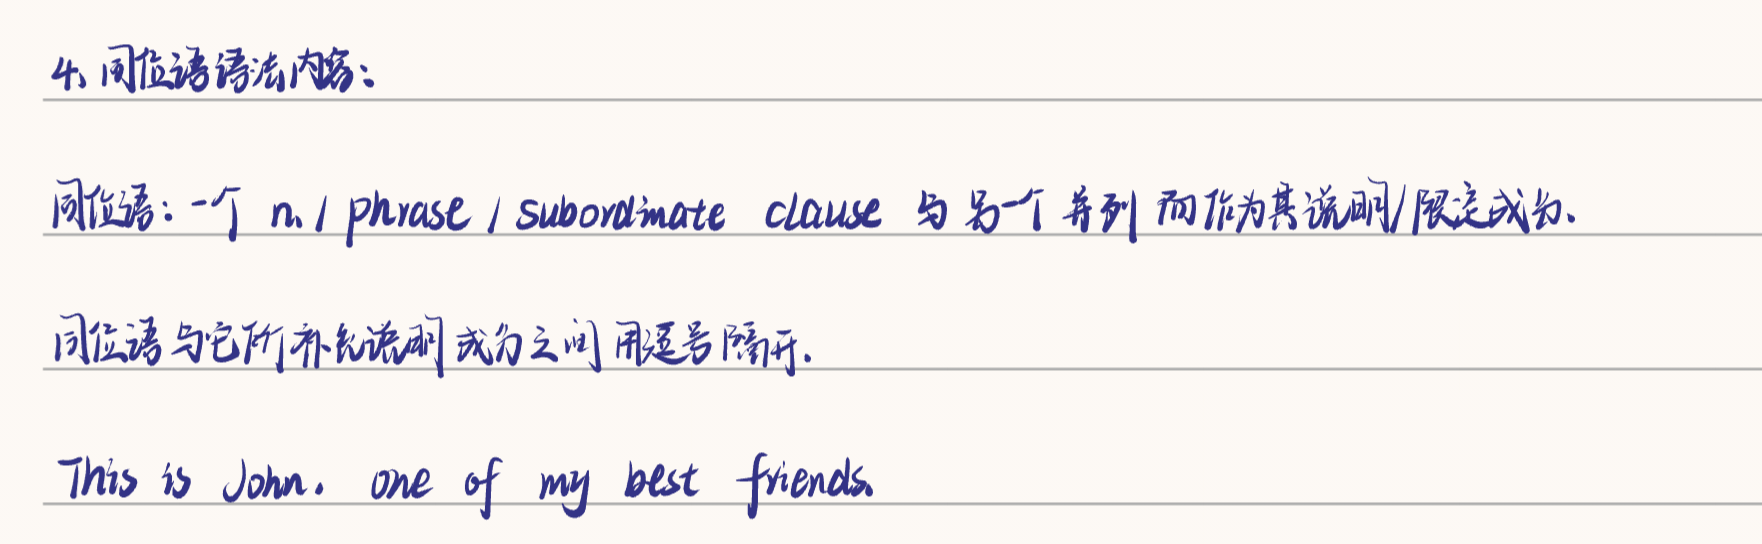 4、同位语语法内容:
同位语:一个 n. / phrase / subordinate clause 与另一个并列而作为其说明/限定成分.
同位语与它所补充说明成分之间用逗号隔开.
This is John. one of my best friends.